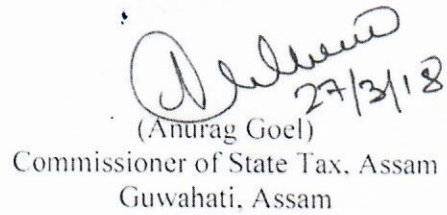 27/3/18
(Anurag Goel)
Commissioner of State Tax, Assam
Guwahati, Assam